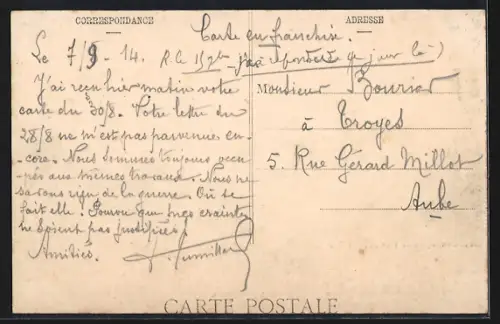 CORRESPONDANCE
ADRESSE
Carte en franchise.
Le 7/9 - 14.
R. le 15
J'ai reçu hier matin votre
carte du 30/8. Votre lettre du
28/8 ne m'est pas parvenue en-
core. Nous sommes toujours occu-
pés aux mêmes travaux. Nous ne
savons rien de la guerre. Où se
fait elle. Pourvu que nos craintes
ne soient pas justifiées!
Amitiés.
Monsieur Bourier
à
Troyes
5. Rue Gérard Millot
Aube
CARTE POSTALE